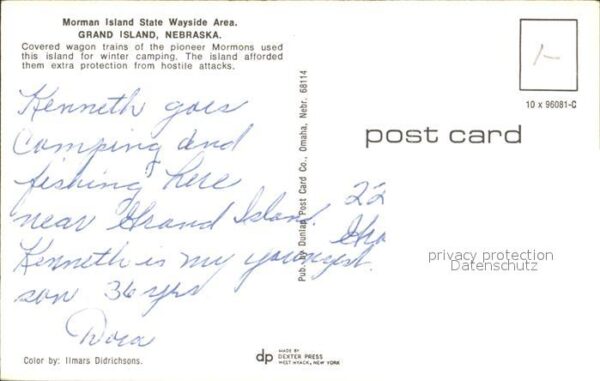 Morman Island State Wayside Area.
GRAND ISLAND, NEBRASKA.
Covered wagon trains of the pioneer Mormons used
this island for winter camping. The island afforded
them extra protection from hostile attacks.
Kenneth goes
Camping and
fishing here
near Grand Island.
Kenneth is my youngest.
son 36 yrs
Dora
Color by: Ilmars Didrichsons.
Pub. by Dunlap Post Card Co., Omaha, Nebr. 68114
dp MADE BY
DEXTER PRESS
WEST NYACK, NEW YORK
10 x 96081-C
post card
22
Gra
privacy protection
Datenschutz